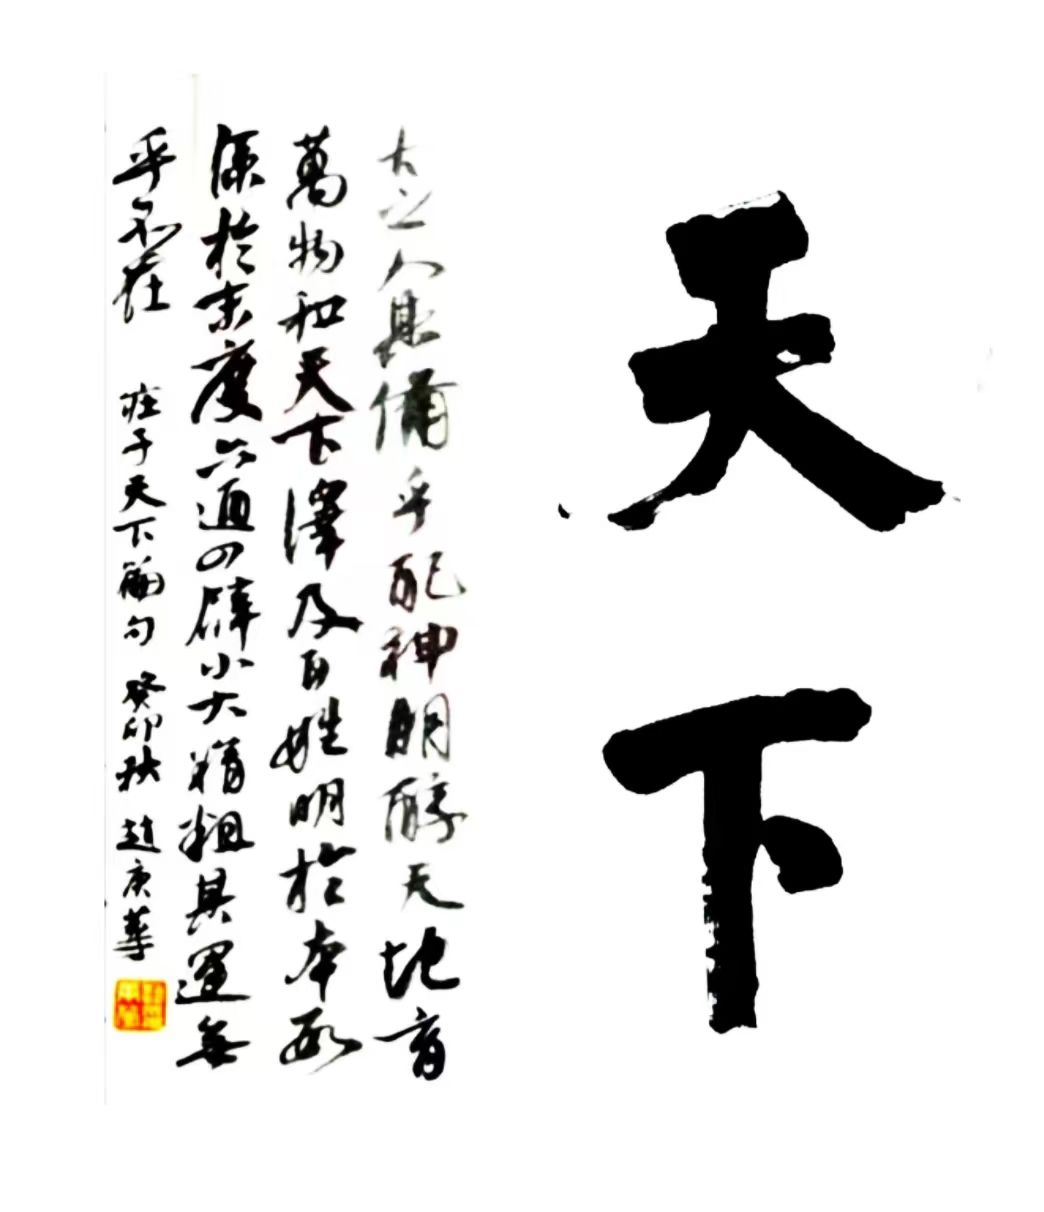 天下
古之人其備乎配神明醇天地育
萬物和天下澤及百姓明於本數
係於末度六通四辟小大精粗其運無
乎不在 莊子天下篇句 癸卯秋 趙庚華